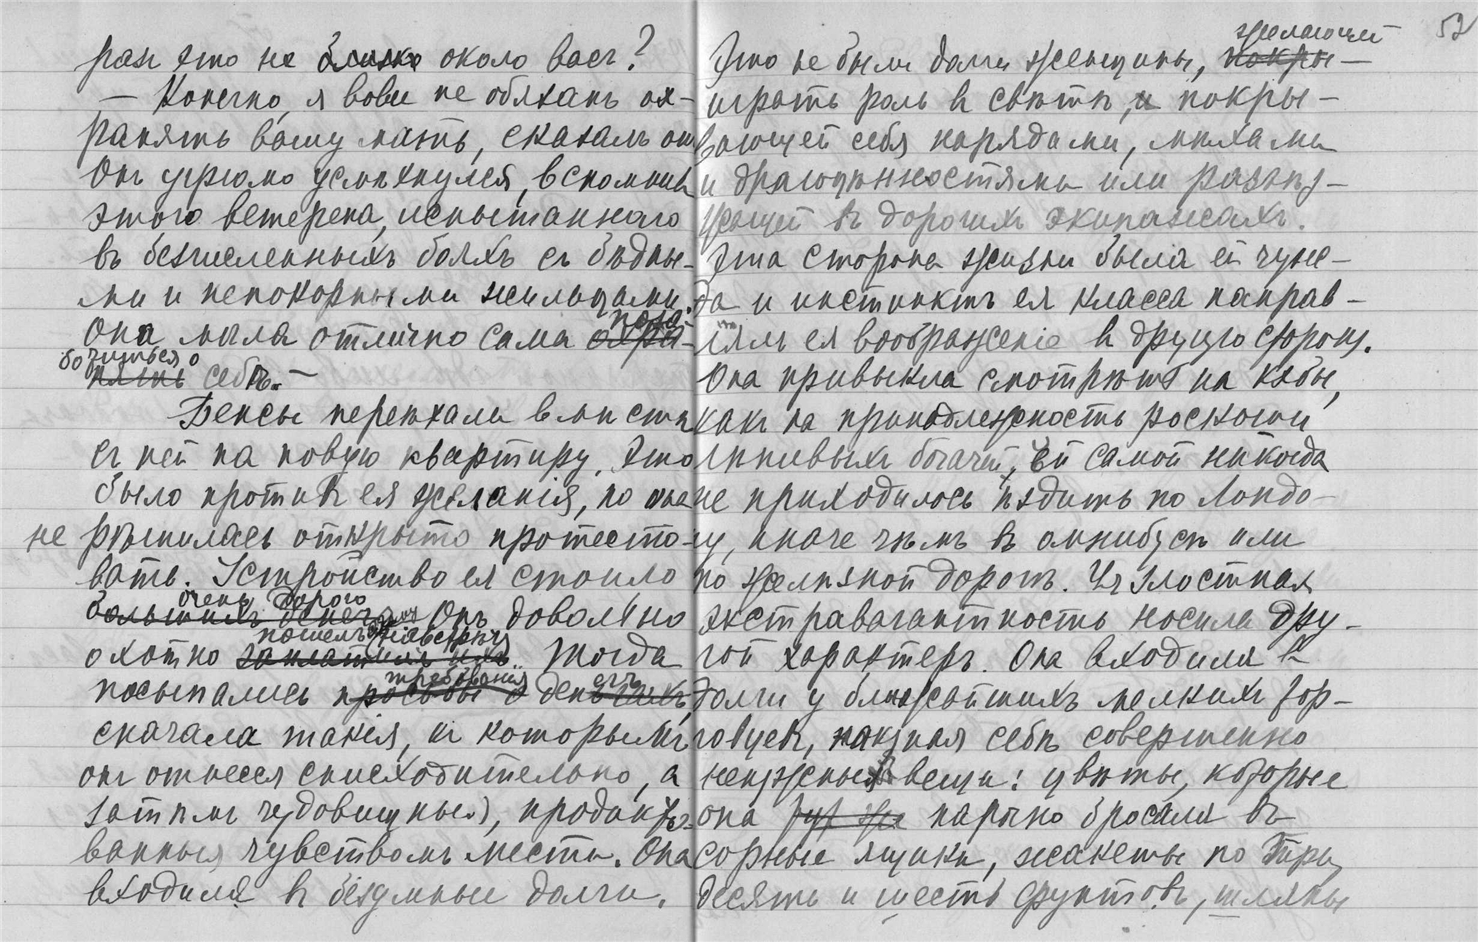 раз это не близко около васъ?
— Конечно, я вовсе не обязанъ ох-
ранять вашу мать, сказалъ онъ
Онъ угрюмо усмѣхнулся, вспомнивъ
этого ветерана, испытаннаго
въ безчисленныхъ бояхъ съ бѣдны-
ми и непокорными жильцами.
Она могла отлично сама охра- поза-
ботиться о
нять себѣ. —
Бенсы переѣхали вмѣстѣ
съ ней на новую квартиру. Это
было противъ ея желанія, но она
не рѣшилась открыто протесто-
вать. Устройство ея стоило
очень дорого
большихъ денегъ. Онъ довольно
пошелъ навстрѣчу
охотно заплатилъ ихъ. Тогда
требованія
посыпались просьбы о деньгахъ,
сначала такія, къ которымъ
онъ отнесся снисходительно, а
затѣмъ чудовищныя, продикто-
ванныя чувствомъ мести. Она
входила въ безумные долги.
52
желающей
Это не были долги женщины, покры-
играть роль въ свѣтѣ, и покры-
вающей себя нарядами, мѣхами
и драгоцѣнностями или разъѣз-
жающей въ дорогихъ экипажахъ.
Эта сторона жизни была ей чуж-
да и инстинктъ ея класса направ-
лялъ ея воображеніе въ другую сторону.
Она привыкла смотрѣть на кэбы,
какъ на принадлежность роскоши
лѣнивыхъ богачей, ей самой никогда
не приходилось ѣздить по Лондо-
ну, иначе чѣмъ въ омнибусѣ или
по желѣзной дорогѣ. Ея злостная
экстравагантность носила дру-
гой характеръ. Она входила въ
долги у ближайшихъ мелкихъ тор-
говцевъ, покупая себѣ совершенно
ненужныя вещи: цвѣты, которые
она тут же нарочно бросала въ
сорные ящики, жакеты по три-
десять и шесть фунтовъ, шляпы